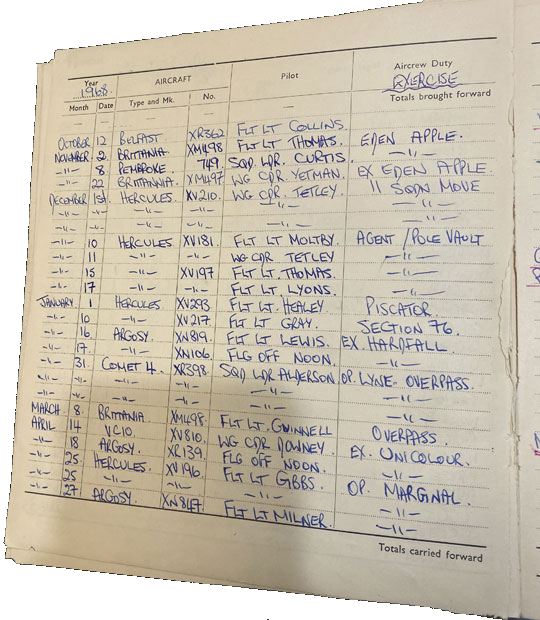 Year AIRCRAFT Pilot Aircrew Duty
1968. EXERCISE
Month Date Type and Mk. No. Totals brought forward
— — — — —
OCTOBER 12 BELFAST XR362 FLT LT COLLINS.
NOVEMBER 2 BRITTANIA XM498 FLT LT THOMAS. EDEN APPLE.
—"— 8 PEMBROKE 749. SQD. LDR. CURTIS. —"—
—"— 22 BRITANNIA. XM497 WG CDR YETMAN. EX EDEN APPLE
DECEMBER 1st HERCULES. XV210. WG CDR. TETLEY. 11 SQDN MOVE
—"— —"— —"— —"— —"— —"—
—"— —"— —"—
—"— 10 HERCULES XV181. FLT LT MOLTBY. AGENT / POLE VAULT
—"— 11 —"— —"— WG CDR TETLEY —"—
—"— 15 —"— XV197 FLT LT. THOMAS. —"—
—"— 17 —"— FLT LT. LYONS. —"—
JANUARY 1 HERCULES XV293 FLT LT. HEALEY PISCATOR.
—"— 10 —"— XV217 FLT LT GRAY. SECTION 76.
—"— 16. ARGOSY. XN819. FLT LT LEWIS. EX. HARDFALL.
—"— 17. —"— XN106. FLG OFF NOON. —"—
—"— 31 COMET 4. XR398. SQD LDR ALDERSON OP. LYNE- OVERPASS.
—"— —"— —"— —"— —"— —"—
—"— —"— —"— —"— —"— —"—
MARCH 8. BRITTANIA XM498. FLT LT. GWINNELL OVERPASS.
APRIL 14 VC10. XV810. WG CDR DOWNEY EX. UNICOLOUR.
—"— 18 ARGOSY. XR139. FLG OFF NOON. —"—
—"— 25 HERCULES. XV196. FLT LT GIBBS. OP. MARGINAL.
—"— 25 —"— —"— —"— —"—
—"— 27 ARGOSY. XN847. FLT LT MILNER. —"—
Totals carried forward